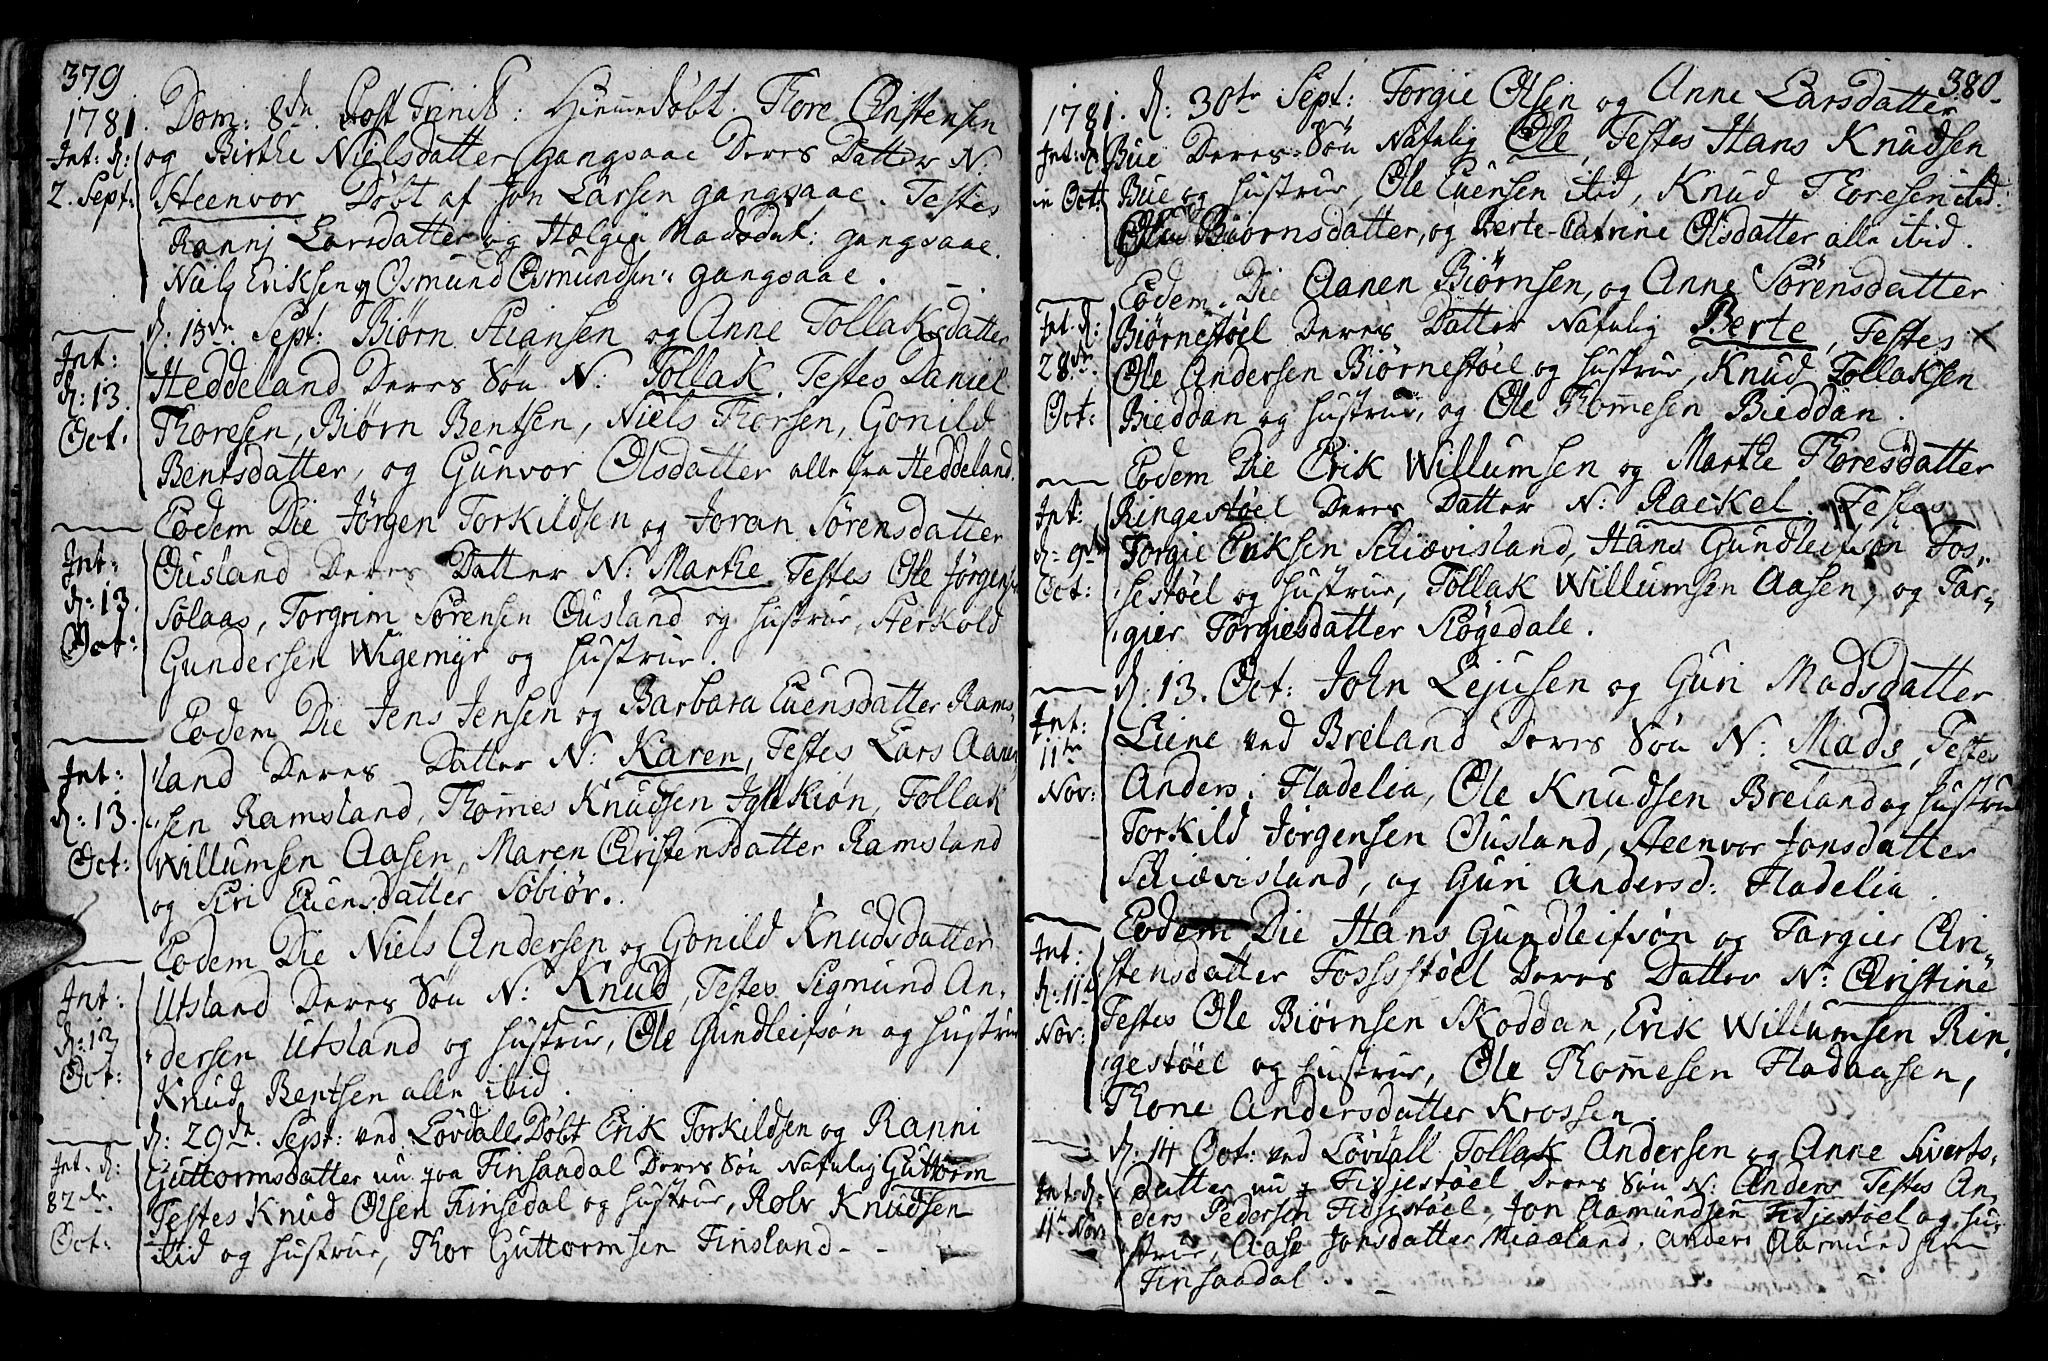 379
1781. Dom: 8de Post Trinit: Hiemedøbt. Thore Christensen
Int: d: og Birthe Nielsdatter Gangsaae Deres Datter N:
2. Sept: Steenvor Døbt af Jon Larsen gangsaae. Testes
Rannj Larsdatter og Hælgie Madsdat: gangsaae.
Niels Eriksen og Osmund Osmundsen: gangsaae.
d: 15de Sept: Biørn Stiansen og Anne Tollaksdatter
Int: Heddeland Deres Søn N: Tollak. Testes Daniel
d: 13. Thoresen, Biørn Bentsen, Niels Thorsen, Gonild
Oct: Bentsdatter, og Gunvor Olsdatter alle fra Heddeland.
Eodem Die Jørgen Torkildsen og Joran Sørensdatter
Int: Ousland Deres Datter N: Marthe Testes Ole Jørgens
d: 13. Solaas, Torgrim Sørensen Ousland og hustrue, Sterkold
Oct: Gundersen Wigemyr og hustrue.
Eodem Die Jens Jensen og Barbara Euensdatter Rams-
Int: land Deres Datter N: Karen, Testes Lars Aanen
d: 13. sen Ramsland, Thomes Knudsen Tollak
Oct: Willumsen Aasen, Maren Christensdatter Ramsland
og Siri Euensdatter Søbiør.
Eodem Die Niels Andersen og Gonild Knudsdatter
Int: Utsland Deres Søn N: Knud, Testes Sigmund An-
d: 12 dersen Utsland og hustrue, Ole Gundleifsøn og hustrue
Oct: Knud Bentsen alle ibid.
d: 29de Sept: ved Løvdall Døbt Erik Torkildsen og Ranni
Int. d: Guttormsdatter nu paa Finsaadal Deres Søn Nafnlig Guttorm
82de Testes Knud Olsen Finsedal og hustrue, Rolv Knudsen
Oct: ibid og hustrue, Thor Guttormsen Finsland
380
1781. d: 30te Sept: Torgie Olsen og Anne Larsdatter
Int: d: Bue Deres Søn Nafnlig Ole, Testes Hans Knudsen
in Oct: Bue og hustrue, Ole Euensen ibid, Knud Thoresen ibid:
Biørnsdatter, og Berte-Catrine Olsdatter alle ibid.
Eodem Die Aanen Biørnsen, og Anne Sørensdatter
Int. d: Biørnestøel Deres Datter Nafnlig Berte, Testes
28de Ole Andersen Biørnestøel og hustrue, Knud Tollaksen
Oct: Bieddan og hustrue, og Ole Thomesen Bieddan.
Eodem Die Erik Willumsen og Marthe Thoresdatter
Int: Ringestøel Deres Datter N: Rackel. Testes
d: 9de Torgie Eriksen Schiævisland, Hans Gundleifsøn Fos-
Oct: sestøel og hustrue, Tollak Willumsen Aasen, og Tar-
gier Torgiesdatter Skøgedale.
d. 13. Oct: John Lejusen og Guri Madsdatter
Int: Liene ved Breland Deres Søn N: Mads, Testes
11te Anders i Fladelia, Ole Knudsen Breland og hustrue
Nov: Torkild Jørgensen Ousland, Steenvor Jonsdatter
Schiævisland, og Guri Andersd: Fladelia.
Eodem Die Hans Gundleifsøn og Targier Chri-
Int: stensdatter Fossestøel Deres Datter N: Christine
d: 11te Testes Ole Biørnsen Skoddan, Erik Willumsen Rin-
Nov: gestøel og hustrue, Ole Thomesen Fladaasen,
Thone Andersdatter Krossen.
d. 14 Oct: ved Løvdall Tollak Andersen og Anne Siverts-
Int: d: datter nu Fidjestøel Deres Søn N: Anders Testes An-
11te Nov: ders Pedersen Fidjestøel, Jon Aamundsen Fidjestøel og hu-
strue, Aase Jonsdatter Miaaland, Anders Aamundsen
Finsaadal.